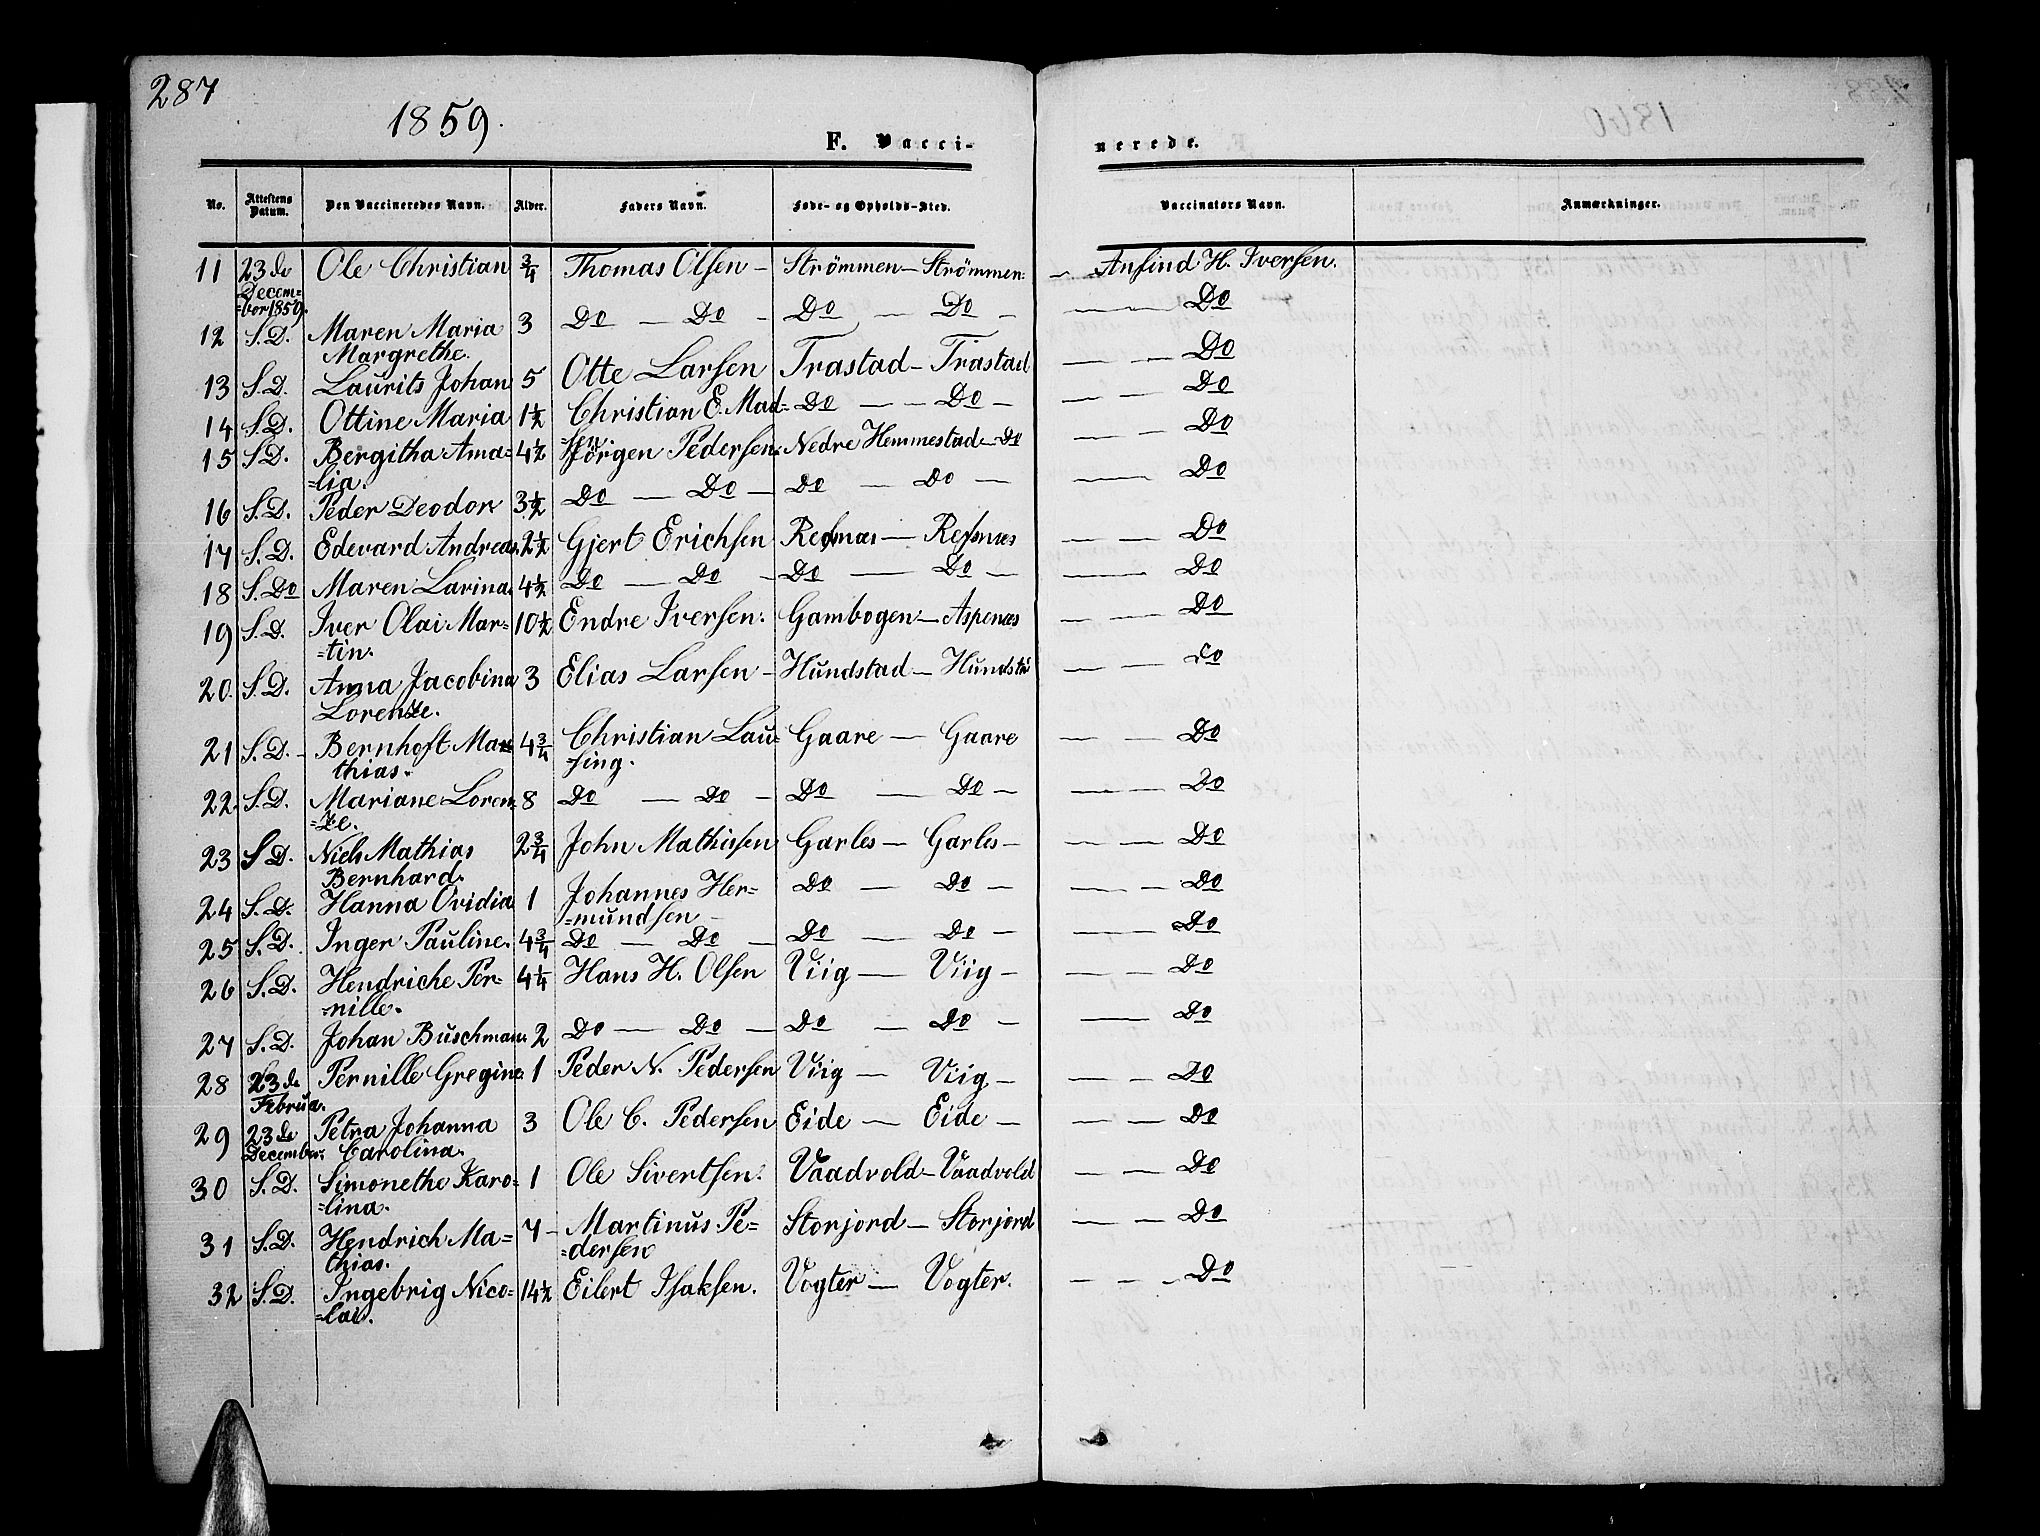 287
1859.
F. Vacci-
nerede.
No. Attestens Datum. Den Vaccineredes Navn. Alder. Faders Navn. Føde- og Opholds-Sted. Vaccinators Navn. Anmærkninger.
11 23de Ole Christian 3/4 Thomas Olsen - Strömmen - Strömmen - Anfind H. Iversen.
Decem=
=ber 1859.
12 S.D. Maren Maria 3 Do - Do - Do - Do - Do
Margrethe.
13 S.D. Laurits Johan 5 Otte Larsen Trastad - Trastad - - Do
14 S.D. Ottine Maria 1 1/2 Christian E. Mad= Do - - Do - - - Do
=sen
15 S.D. Bergitha Ama= 4 1/2 Jörgen Pedersen. Nedre Hemmestad - Do - - Do
=lia.
16 S.D. Peder Deodor 3 1/2 Do - Do - Do - Do - - - Do
17 S.D. Edevard Andreas. 2 1/2 Gjert Erichsen Refsnæs - Refsnæs - - Do
18 S. Do Maren Larina. 4 1/2 Do - Do - Do - Do - - Do
19 S.D. Iver Olai Mar= 10 1/2 Endre Iversen. Gambogen - Aspenæs - - Do
=tin.
20. S.D. Anna Jacobina 3 Elias Larsen - Hundstad - Hundsta - - Do
Lorenze.
21 S.D. - Bernhoft Ma 4 3/4 Christian Lau= Gaare - Gaare - - Do
thias. =sing.
22. S.D. Mariane Loren 8 Do - Do - Do - Do - - - Do
=ze.
23 S D. Niels Mathias 2 3/4 John Mathisen Garles - Garles - - - Do
Bernhard.
24 S.D. Hanna Ovidia 1 Johannes Her= Do - Do - - - Do
=mundsen -
25 S.D. Inger Pauline. 4 3/4 Do - Do - Do - Do - - - Do
26 S.D. Hendriche Per- 4 1/4 Hans H. Olsen Viig - Viig - - - Do
=nille.
27 S.D. Johan Buschman. 2 Do - Do - Do - Do - - Do
28 23de Pernille Gregine. 1 Peder N. Pedersen Viig - Viig - - - Do
Februa.
29 23de Petra Johanna 3 Ole C. Pedersen Eide - Eide - - - Do
December. Carolina.
30 S.D. Simonethe Karo= 1 Ole Sivertsen. Vaadvold - Vaadvold - - Do
=lina.
31 S.D. Hendrich Ma= 7 - Martinus Pe= Storjord - Storjord - - Do
thias. =dersen
32 S.D. Ingebrig Nico= 14 1/2 Eilert Isaksen. Vogter - Vogter. - - - Do
=lai.